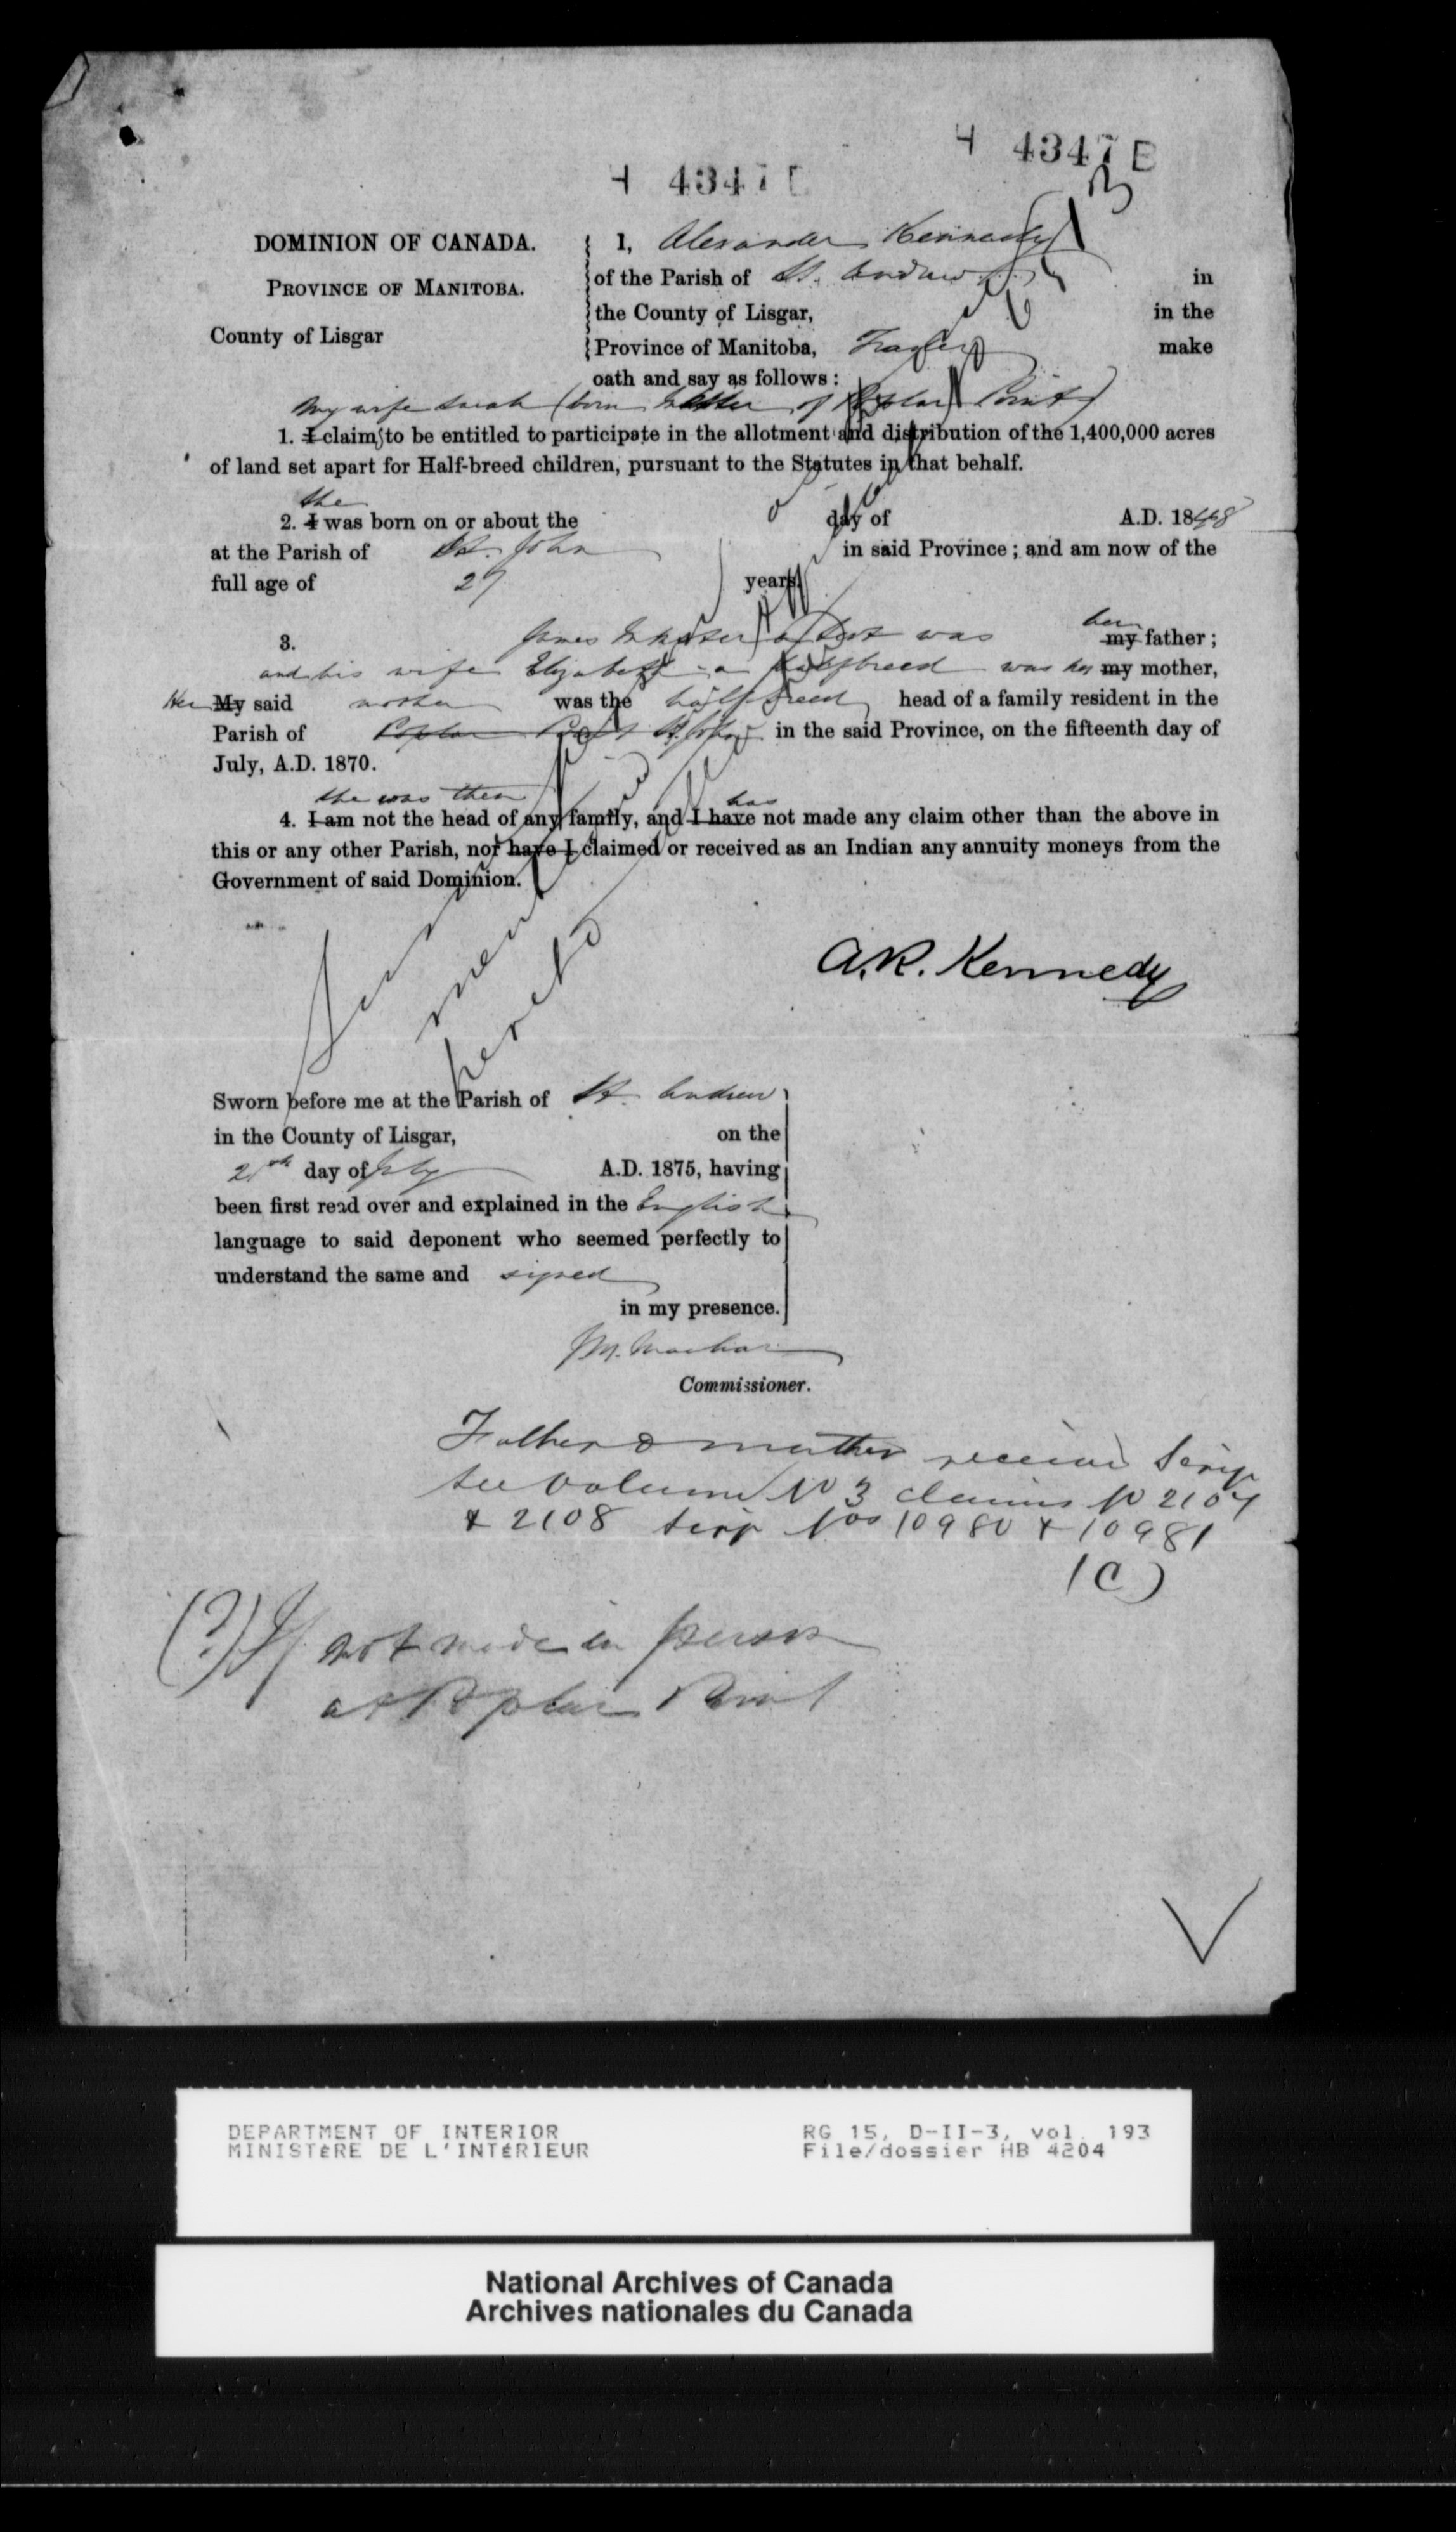 H 4347 B
H 4347
DOMINION OF CANADA.
PROVINCE OF MANITOBA.
County of Lisgar
I, Alexander Kennedy
of the Parish of St. Andrews in
the County of Lisgar, in the
Province of Manitoba, make
oath and say as follows:
My wife Sarah (born Inkster of Poplar Point)
1. I claim to be entitled to participate in the allotment and distribution of the 1,400,000 acres
of land set apart for Half-breed children, pursuant to the Statutes in that behalf.
she
2. I was born on or about the day of A.D. 1848
at the Parish of St. John in said Province; and am now of the
full age of 27 years.
3. James Inkster a was her my father;
and his wife Elizabeth a halfbreed was her my mother,
Her My said mother was the halfbreed head of a family resident in the
Parish of Poplar Point St. John in the said Province, on the fifteenth day of
July, A.D. 1870.
she was then has
4. I am not the head of any family, and I have not made any claim other than the above in
this or any other Parish, nor have I claimed or received as an Indian any annuity moneys from the
Government of said Dominion.
hereto
A.R. Kennedy
Sworn before me at the Parish of St. Andrew
in the County of Lisgar, on the
day of July A.D. 1875, having
been first read over and explained in the English
language to said deponent who seemed perfectly to
understand the same and signed
in my presence.
J.M. Machar
Commissioner.
Father & mother received Scrip
see volume No 3 claims No 2107
& 2108 Scrip Nos 10980 & 10981
(C)
(?) If not made in person
at Poplar Point
DEPARTMENT OF INTERIOR
MINISTÈRE DE L'INTÉRIEUR
RG 15, D-II-3, vol. 193
File/dossier HB 4204
National Archives of Canada
Archives nationales du Canada